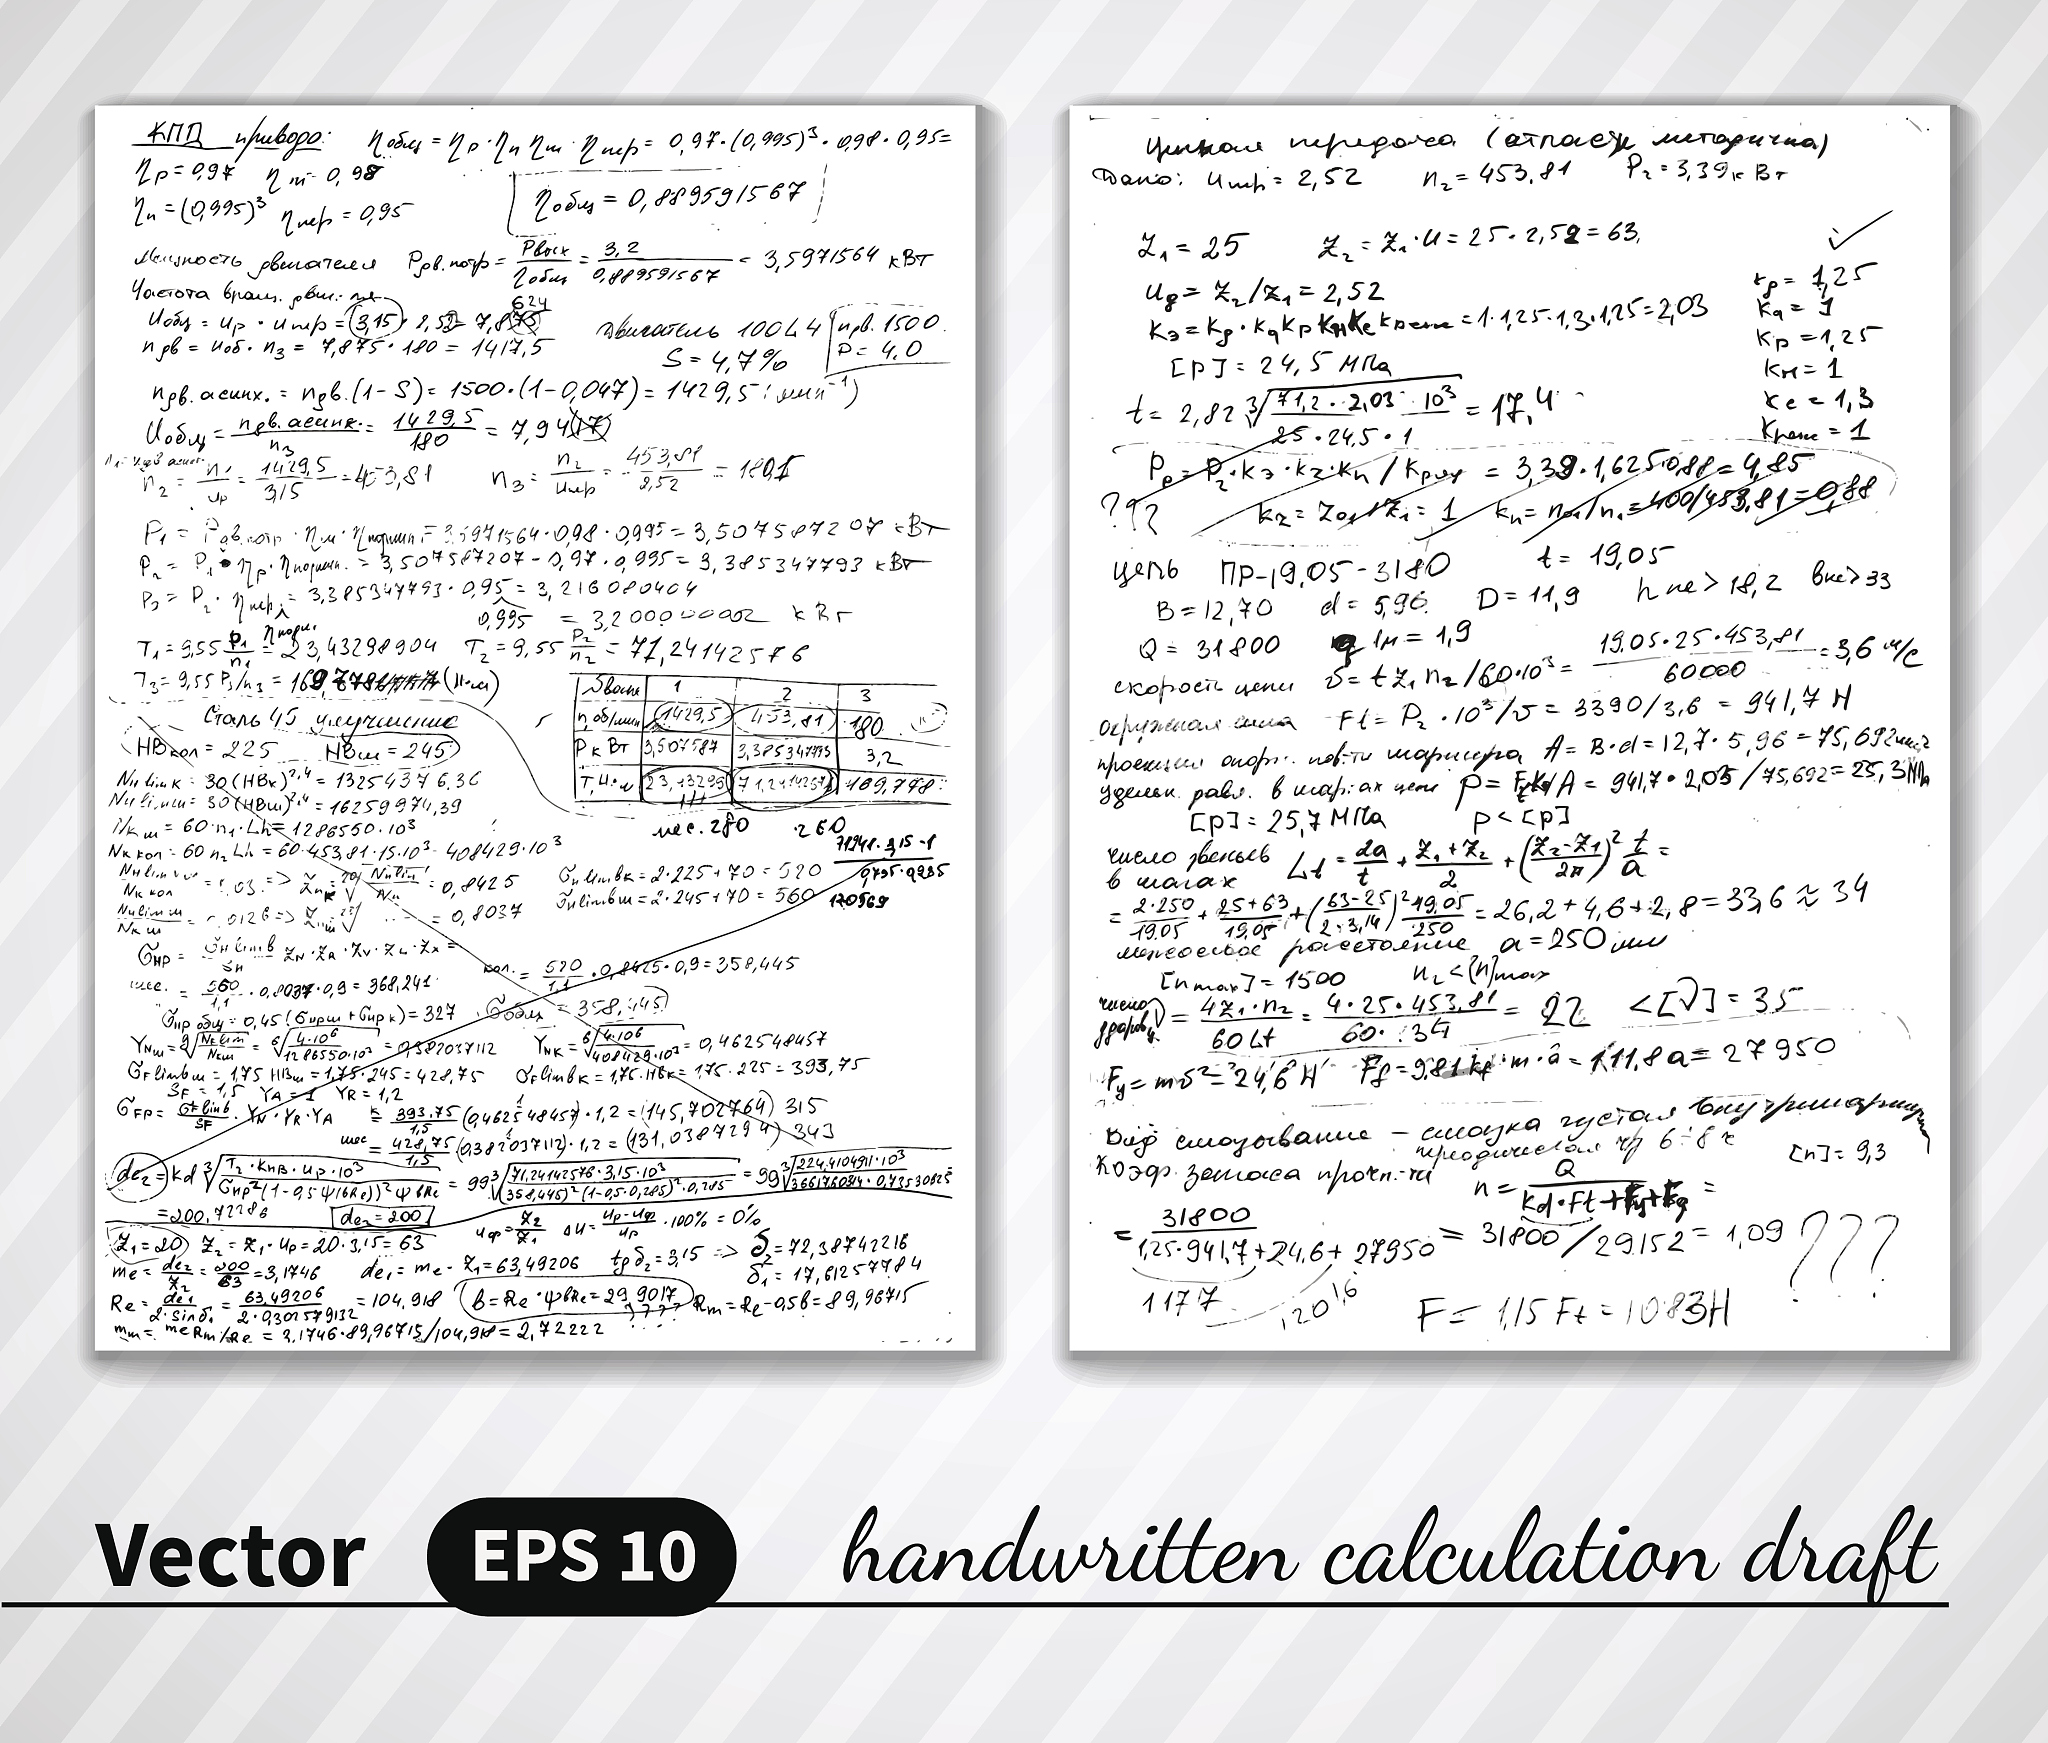 КПД привода: ηобщ = ηр · ηп ηм · ηпер = 0,97 · (0,995)³ · 0,98 · 0,95 =
ηр = 0,97 ηм = 0,98
ηп = (0,995)³ ηпер = 0,95
ηобщ = 0,889591567
Мощность двигателя Рдв.потр = Рвых / ηобщ = 3,2 / 0,889591567 = 3,5971564 кВт
Частота вращ. двиг.
Uобщ = Uр · Uпер = 3,15 · 2,52 = 7,8
624
nдв = Uоб · n3 = 7,875 · 180 = 1417,5
Двигатель 100L4
S = 4,7%
nдв. 1500
P = 4.0
nдв. асинх. = nдв. (1 - S) = 1500 · (1 - 0,047) = 1429,5 (мин⁻¹)
Uобщ = nдв. асинх. / n3 = 1429,5 / 180 = 7,94
n2 = n1 / Uр = 1429,5 / 3,15 = 453,81 n3 = n2 / Uпер = 453,81 / 2,52 = 180,1
P1 = Рдв.потр · ηм · ηподшип = 3,5971564 · 0,98 · 0,995 = 3,507587207 кВт
P2 = P1 · ηр · ηподшип. = 3,507587207 · 0,97 · 0,995 = 3,385347793 кВт
P3 = P2 · ηпер = 3,385347793 · 0,95 = 3,216080404
ηподш. 0,995 = 3,200000002 кВт
T1 = 9,55 P1 / n1 = 23,43298904 T2 = 9,55 P2 / n2 = 71,24142576
T3 = 9,55 P3 / n3 = 169,778 (Н·м)
Sвала 1 2 3
n, об/мин 1429,5 453,81 180
P кВт 3,507587 3,385347793 3,2
T, Н·м 23,43299 71,2414257 169,778
Сталь 45 улучшение
HBкол = 225 HBш = 245
NHlimк = 30 (HBк)²,⁴ = 13254376,36
NHlimш = 30 (HBш)²,⁴ = 16259974,39
Nкш = 60 · n1 · Lh = 1286550 · 10³
Nк кол = 60 n2 Lh = 60 · 453,81 · 15 · 10³ = 408429 · 10³
шес. 280 260
71241 · 3,15 · 1
120569
= 0,8425 σHlimbк = 2·225 + 70 = 520
= 0,8037 σHlimbш = 2·245 + 70 = 560
σHP = σHlimb / SH ZN · ZR · ZV · ZL · ZX =
кол. = 520 / 1,1 · 0,8425 · 0,9 = 358,445
шес. = 560 / 1,1 · 0,8037 · 0,9 = 368,241
σHP общ = 0,45 (σHPш + σHPк) = 327 σобщ = 358,445
YNш = ⁶√(4·10⁶ / 1286550·10³) = 0,382037112 YNк = ⁶√(4·10⁶ / 408429·10³) = 0,462548457
σFlimbш = 1,75 HBш = 1,75 · 245 = 428,75 σFlimbк = 1,75 · HBк = 1,75 · 225 = 393,75
SF = 1,5 YA = 1 YR = 1,2
σFP = σFlimb / SF · YN · YR · YA к = 393,75 / 1,5 (0,462548457) · 1,2 = (145,702764) 315
шес = 428,75 / 1,5 (0,382037112) · 1,2 = (131,0387294) 343
de2 = kd ³√(T2 · KHB · Uр · 10³ / σHP² (1 - 0,5 ψbRe) ψbRe) = 99 ³√(71,24142576 · 3,15 · 10³ / (358,445)² (1 - 0,5 · 0,285)² · 0,285) = 99 ³√(224,4104911 · 10³
= 200,72286 de2 = 200 Uф = Z2 / Z1 ΔU = Uр - Uф / Uр · 100% = 0%
Z1 = 20 Z2 = Z1 · Uр = 20 · 3,15 = 63
me = de2 / Z2 = 200 / 63 = 3,1746 de1 = me · Z1 = 63,49206 tg δ2 = 3,15 => δ2 = 72,38742216
δ1 = 17,61257784
Re = de1 / 2 · sin δ1 = 63,49206 / 2 · 0,302579132 = 104,918 b = Re · ψbRe = 29,9017 ???? Rm = Re - 0,5b = 89,96715
mm = me Rm / Re = 3,1746 · 89,96715 / 104,918 = 2,72222
Цепная передача (отпасте методичка)
Дано: Uпер = 2,52 n2 = 453,81 P2 = 3,39 кВт
Z1 = 25 Z2 = Z1 · U = 25 · 2,52 = 63,
Uд = Z2 / Z1 = 2,52
Kд = 1,25
Kа = 1
Kр = 1,25
Kн = 1
Kс = 1,3
Kреж = 1
Kэ = Kд · Kа Kр Kн Kс Kреж = 1 · 1,25 · 1,3 · 1,25 = 2,03
[P] = 24,5 МПа
t = 2,82 ³√(71,2 · 2,03 · 10³ / 25 · 24,5 · 1) = 17,4
Pр = P2 · Kэ · Kz · Kп / Kряд = 3,39 · 1,625 · 0,88 = 4,85
??? Kz = Z01 / Z1 = 1 Kn = n01 / n1 = 400 / 453,81 = 0,88
цепь ПР-19,05-3180 t = 19,05
B = 12,70 d = 5,96 D = 11,9 h не > 18,2 b не > 33
Q = 31800 q 1м = 1,9
скорость цепи υ = t Z1 n2 / 60 · 10³ = 19.05 · 25 · 453,81 / 60000 = 3,6 м/с
окружная сила Ft = P2 · 10³ / υ = 3390 / 3,6 = 941,7 Н
проекция опорн. пов-ти шарнира A = B · d = 12,7 · 5,96 = 75,692 мм²
удельн. давл. в шар-ах цепи p = Ft Kэ / A = 941,7 · 2,03 / 75,692 = 25,3 МПа
[p] = 25,7 МПа p < [p]
число звеньев в шагах Lt = 2a / t + Z1 + Z2 / 2 + (Z2 - Z1 / 2π)² t / a =
= 2·250 / 19.05 + 25+63 / 19,05 + (63-25 / 2·3,14)² 19,05 / 250 = 26,2 + 4,6 + 2,8 = 33,6 ≈ 34
межосевое расстояние a = 250 мм
[nmax] = 1500 n2 < [n]max
число ударов ν = 4Z1 · n2 / 60 Lt = 4 · 25 · 453,81 / 60 · 34 = 22 < [ν] = 35
Fу = mυ² = 24,6 Н Ff = 9,81 kf · m · a = 111,8 a = 27950
Вид смазывание – смазка густая внутришарнирн
периодическая чр 6÷8 ч
Коэф. запаса прочн-ти n = Q / Kд · Ft + Fу + Ff = [n] = 9,3
= 31800 / 1,25 · 941,7 + 24,6 + 27950 = 31800 / 29152 = 1,09 ???
1177 1,2016
F = 1,15 Ft = 1083 Н
Vector EPS 10 handwritten calculation draft